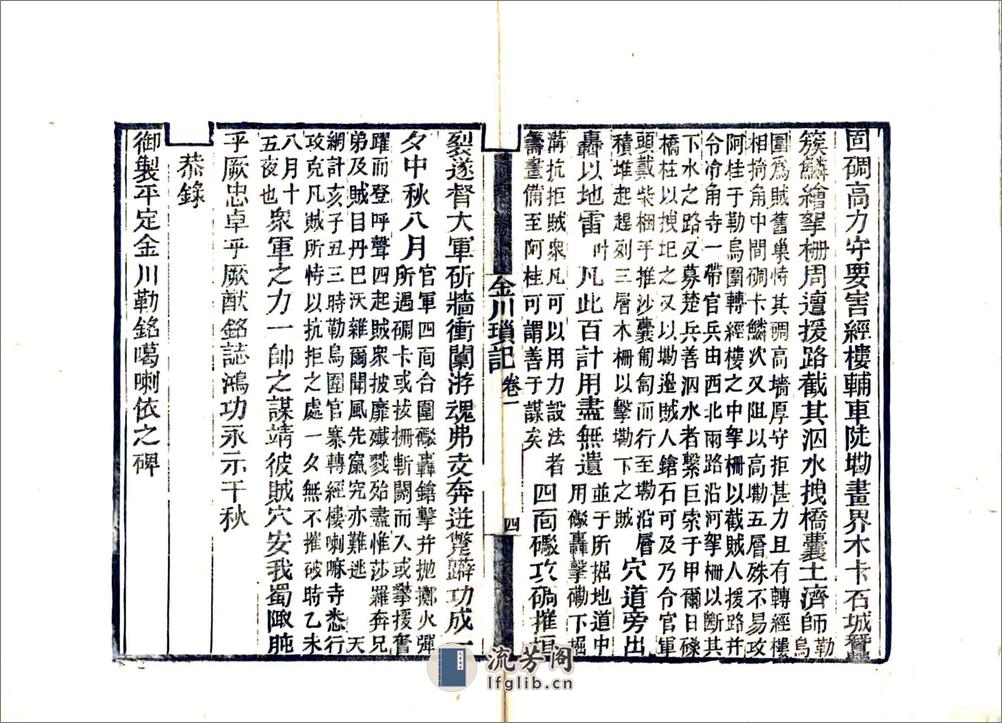 固碉高力守要害經樓輔車陡墈畫界木卡石城
簇鱗繪拏柵周遭援路截其泅水拽橋囊土濟師勒烏
圍爲賊舊巢恃其碉高墻厚守拒甚力且有轉經樓
相掎角中間碉卡鱗次又阻以高墈五層殊不易攻
阿桂于勒烏圍轉經樓之中拏柵以截賊人援路并
令帝角寺一帶官兵由西北兩路沿河拏柵以斷其
下水之路又募楚兵善泅水者繫巨索于甲爾日磉
橋柱以拽圮之又以墈邊賊人鎗石可及乃令官軍
頭戴柴梱手推沙囊匍匐而行至墈沿層
積堆起趕列三層木柵以擊墈下之賊
穴道旁出
轟以地雷凡此百計用盡無遺
並于所掘地道中
用礮轟擊墈下掘
溝抗拒賊衆凡可以用力設法者
籌畫備至阿桂可謂善于謀矣
四面礮攻碉摧垣
金川瑣記 卷一 四
裂遂督大軍斫牆衝闌游魂弗支奔迸躄躃功成一
夕中秋八月
官軍四面合圍礮轟鎗擊并拋擲火彈
所遇碉卡或拔柵斬關而入或攀援奮
躍而登呼聲四起賊衆披靡殲戮殆盡惟莎羅奔兄
弟及賊目丹巴沃雜爾聞風先竄究亦難逃 天
網計亥子丑三時勒烏圍官寨轉經樓喇嘛寺悉行
攻克凡賊所恃以抗拒之處一夕無不摧破時乙未
八月十
五夜也
衆軍之力一帥之謀靖彼賊穴安我蜀陬肫
乎厥忠卓乎厥猷銘誌鴻功永示千秋
恭錄
御製平定金川勒銘噶喇依之碑
流芳阁
lfglib.cn